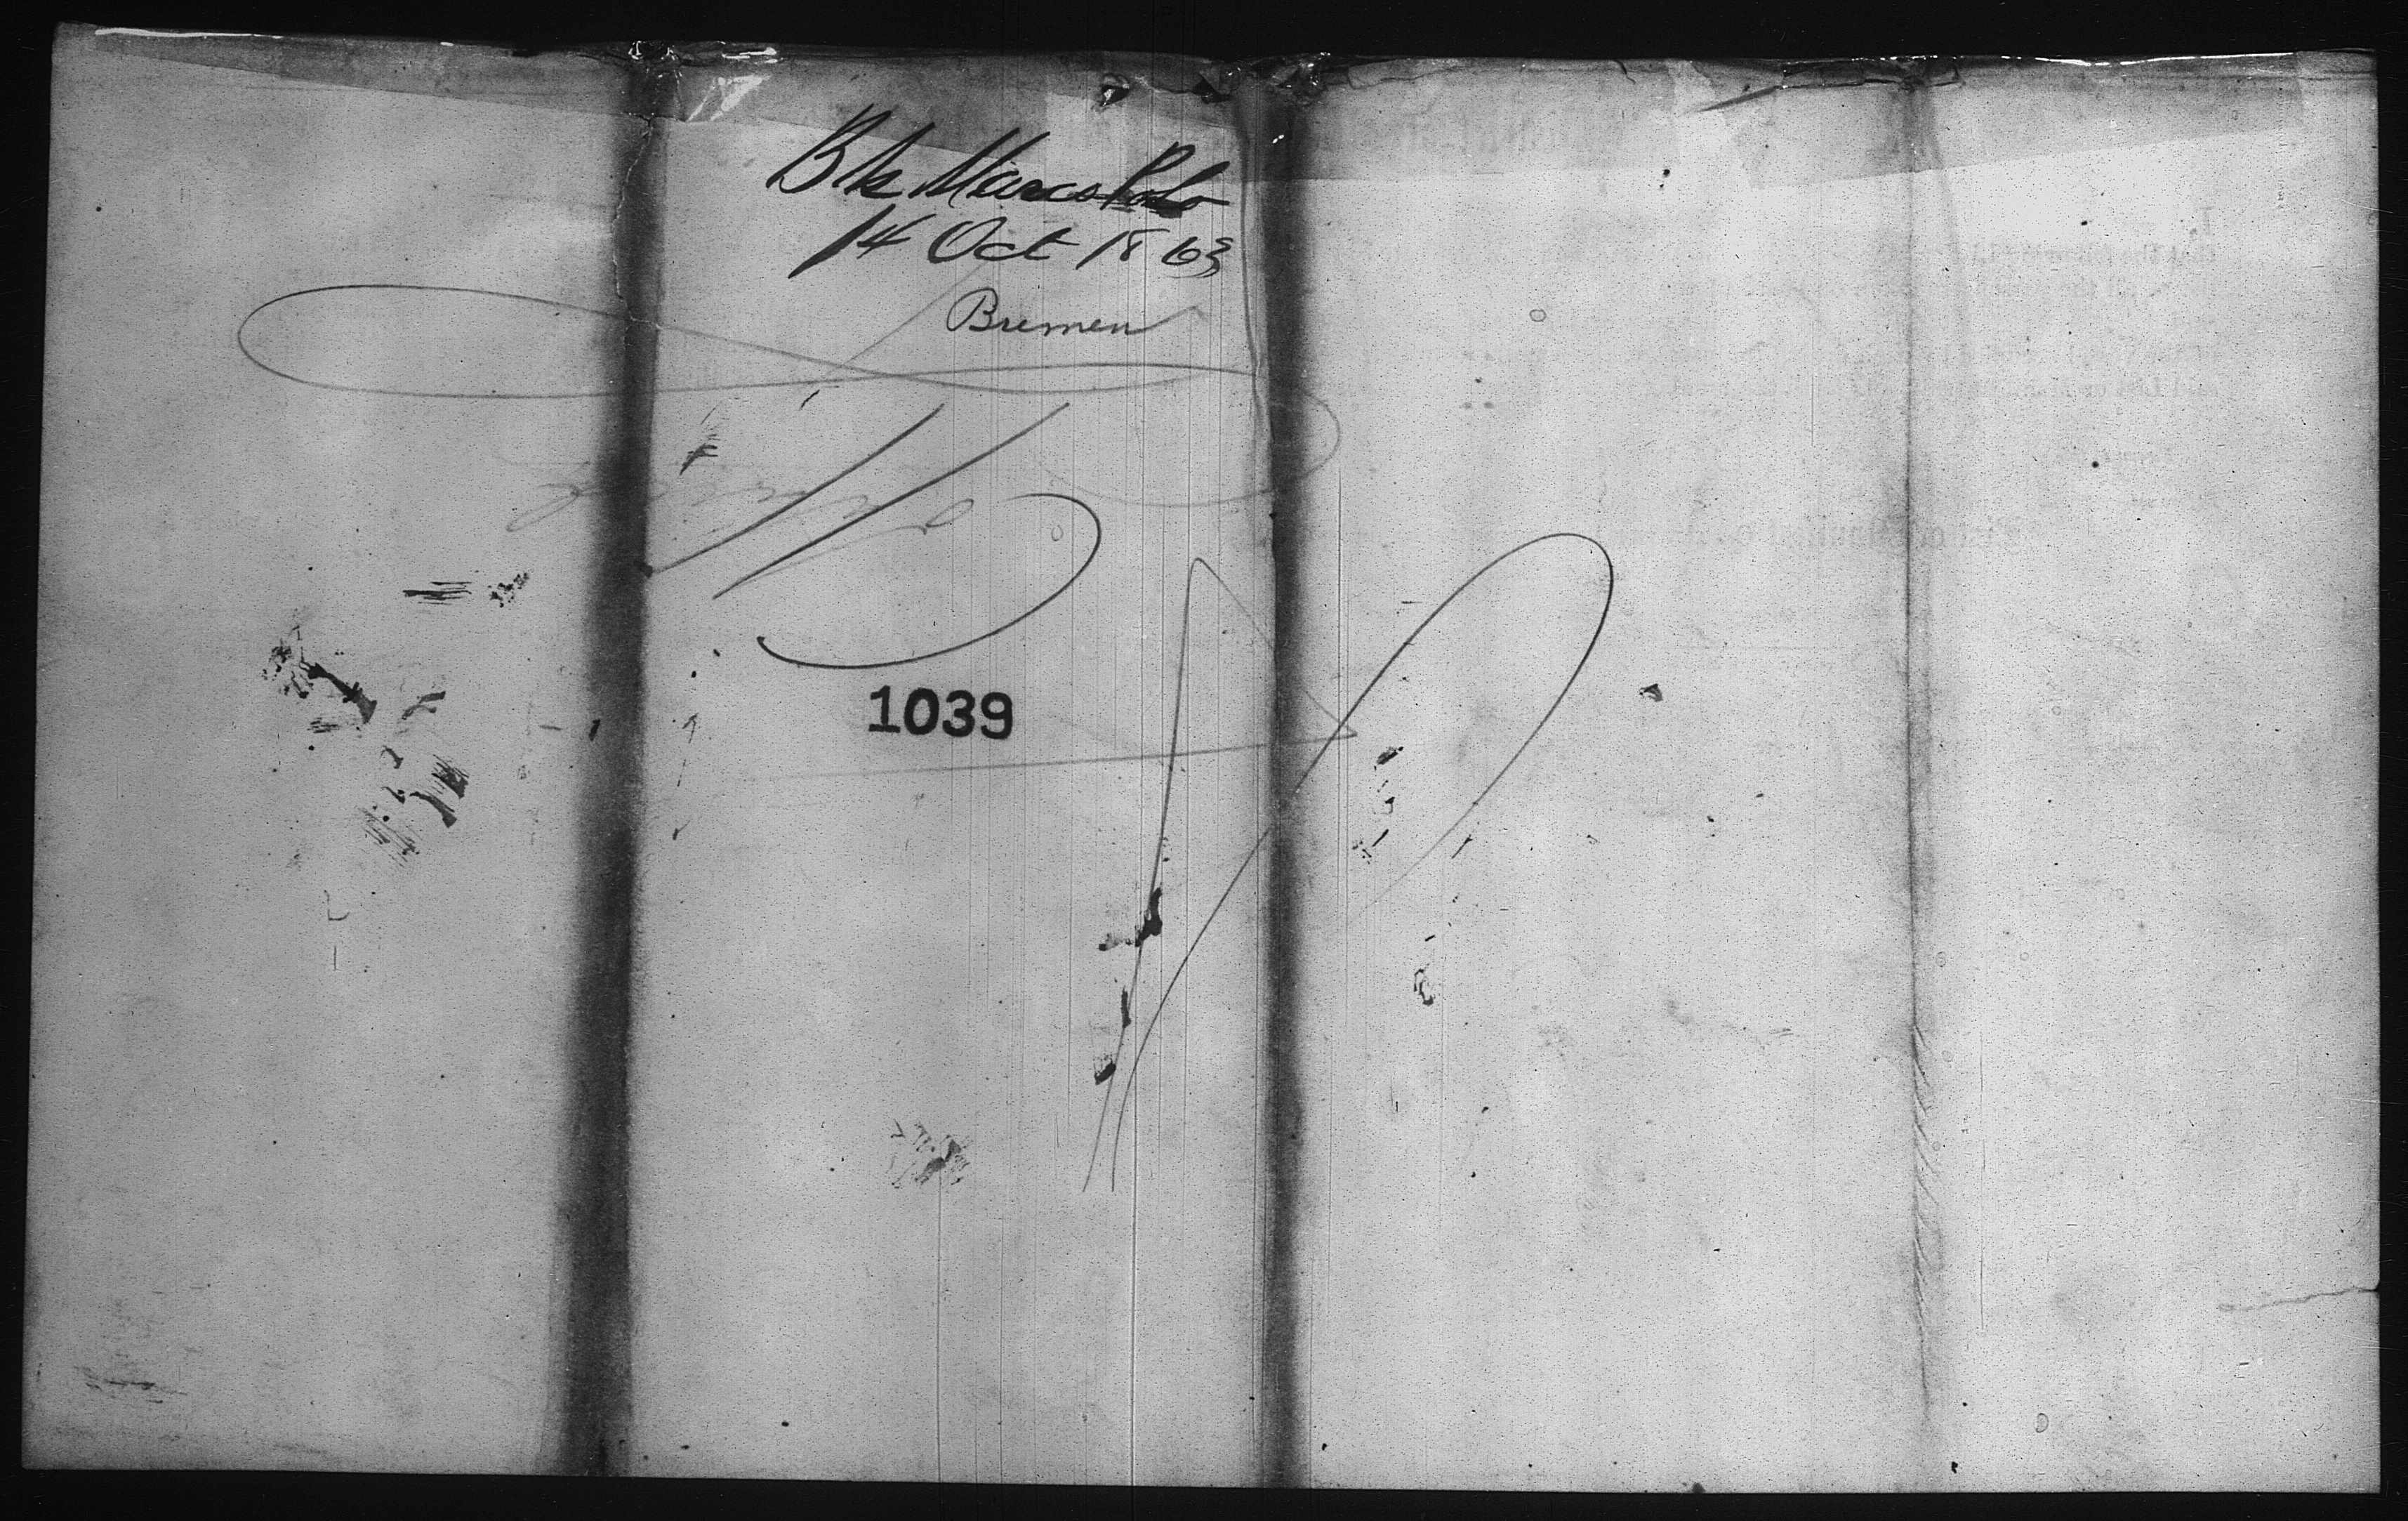 Bk Marco Polo
14 Oct 1863
Bremen
1039